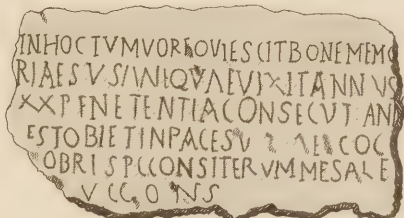 INHOCTVMVOREQVIESCITBONEMEMO
RIAE VIXITANNVS
XXPENETENTIACONSECVT AN
ESTOBIETINPACE
OBRISPCCONSITERVMMESALE
V CC ONS